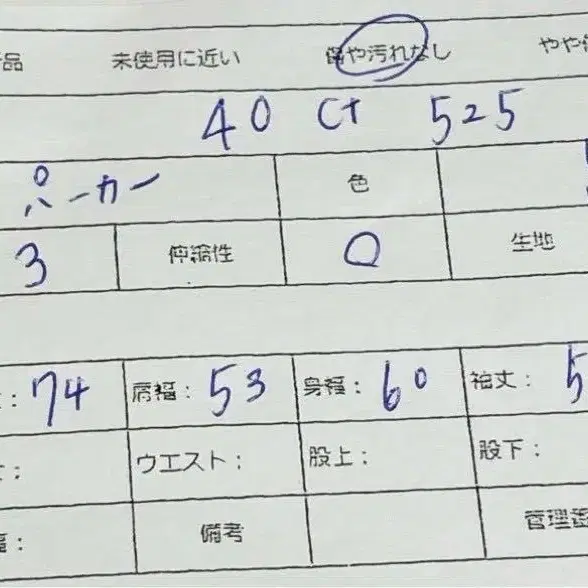 品 未使用に近い 傷や汚れなし やや
40 Ct 525
パーカー 色
3 伸縮性 0 生地
: 74 肩幅: 53 身幅: 60 袖丈: 5
: ウエスト: 股上: 股下:
幅: 備考 管理番